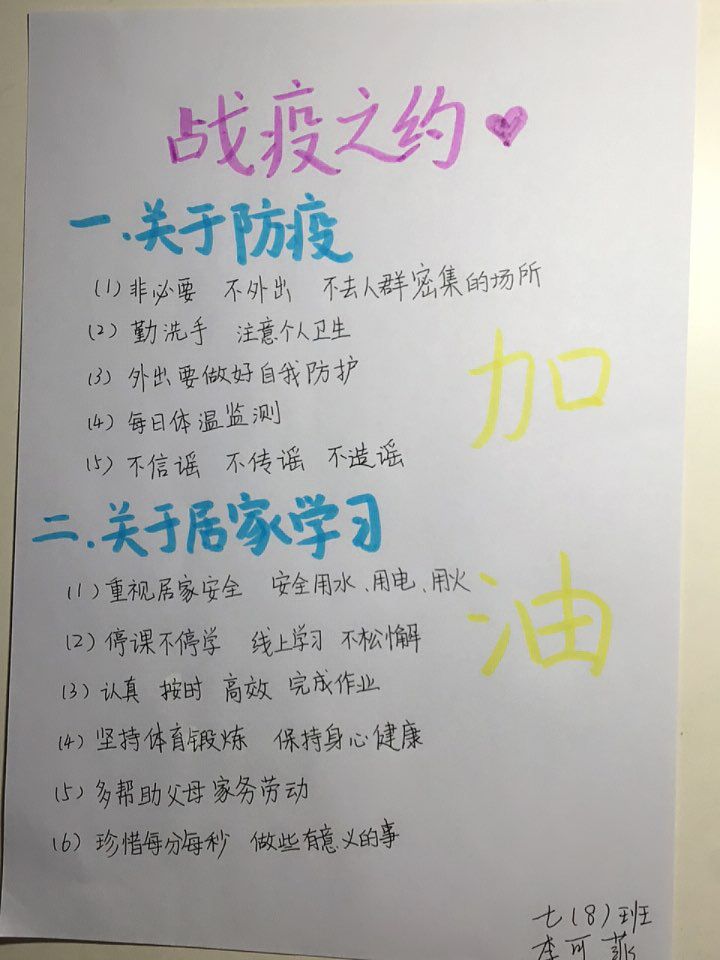 战疫之约
一.关于防疫
(1)非必要 不外出 不去人群密集的场所
(2)勤洗手 注意个人卫生
(3)外出要做好自我防护
(4)每日体温监测
(5)不信谣 不传谣 不造谣
加
二.关于居家学习
(1)重视居家安全 安全用水、用电、用火
(2)停课不停学 线上学习 不松懈
(3)认真 按时 高效 完成作业
(4)坚持体育锻炼 保持身心健康
(5)多帮助父母家务劳动
(6)珍惜每分每秒 做些有意义的事
油
七(8)班
李可